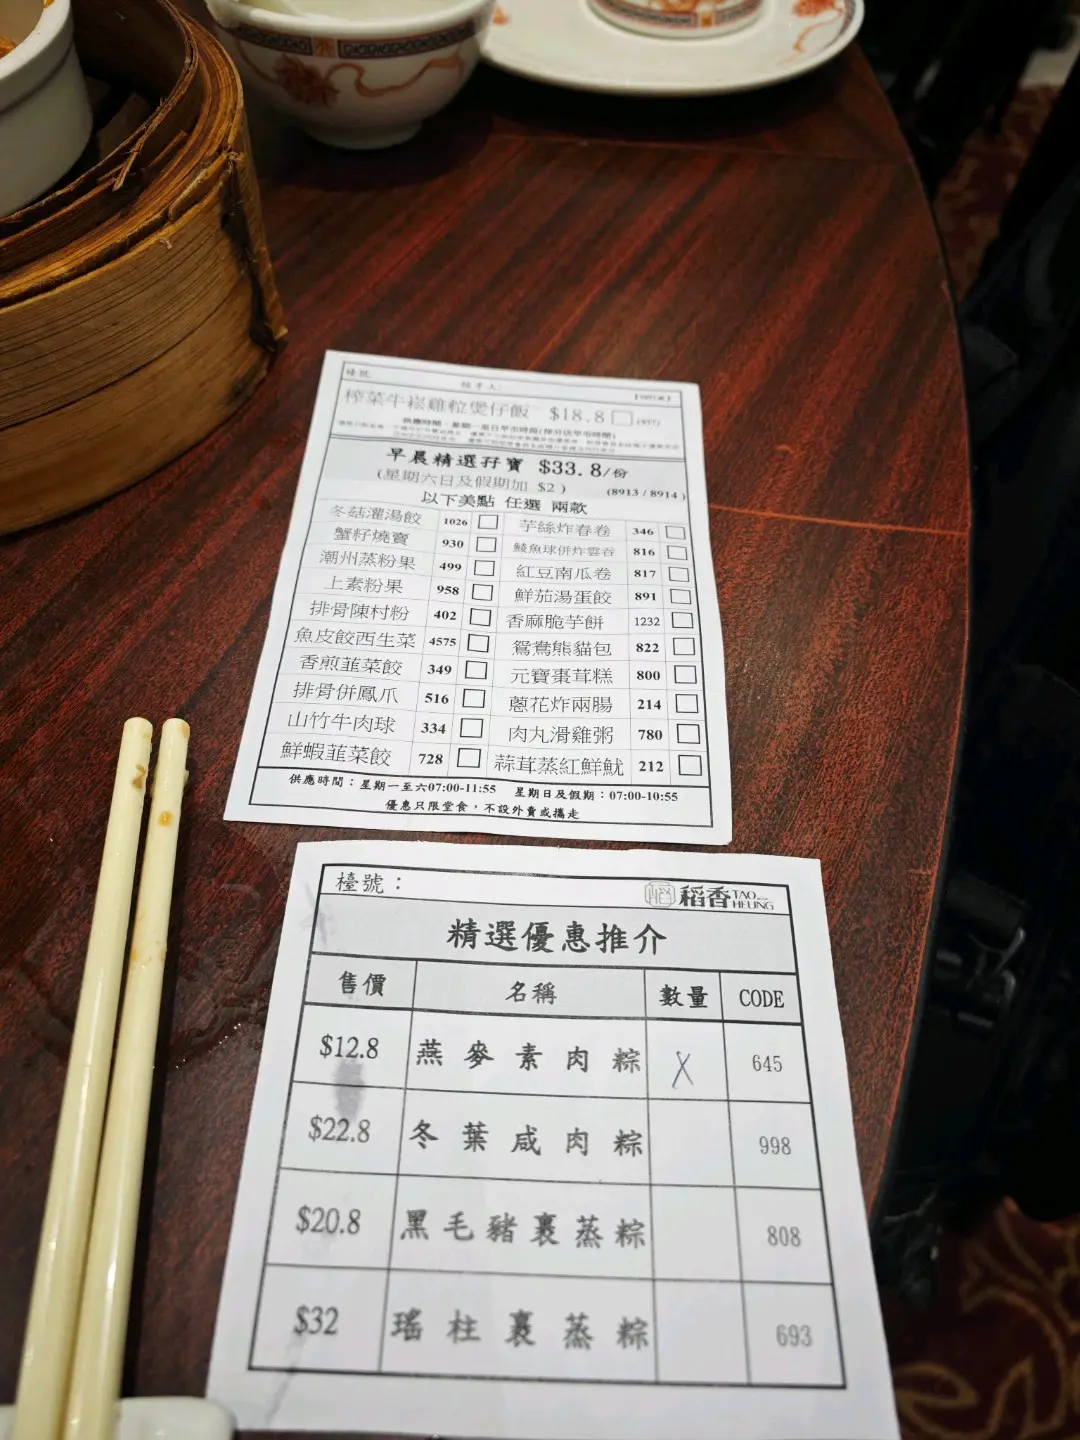 檯號:
經手人:
榨菜牛崧雞粒煲仔飯 $18.8 (957)
供應時間：星期一至日早市時段(部分店早市時間)
早晨精選孖寶 $33.8/份
(星期六日及假期加 $2) (8913 / 8914)
以下美點 任選 兩款
冬菇灌湯餃 1026 □ 芋絲炸春卷 346 □
蟹籽燒賣 930 □ 鯪魚球併炸雲吞 816 □
潮州蒸粉果 499 □ 紅豆南瓜卷 817 □
上素粉果 958 □ 鮮茄湯蛋餃 891 □
排骨陳村粉 402 □ 香麻脆芋餅 1232 □
魚皮餃西生菜 4575 □ 鴛鴦熊貓包 822 □
香煎韮菜餃 349 □ 元寶棗茸糕 800 □
排骨併鳳爪 516 □ 蔥花炸兩腸 214 □
山竹牛肉球 334 □ 肉丸滑雞粥 780 □
鮮蝦韮菜餃 728 □ 蒜茸蒸紅鮮魷 212 □
供應時間：星期一至六07:00-11:55 星期日及假期：07:00-10:55
優惠只限堂食，不設外賣或攜走
檯號： 稻香 TAO HEUNG
精選優惠推介
售價 名稱 數量 CODE
$12.8 燕麥素肉粽 X 645
$22.8 冬葉咸肉粽 998
$20.8 黑毛豬裹蒸粽 808
$32 瑤柱裹蒸粽 693